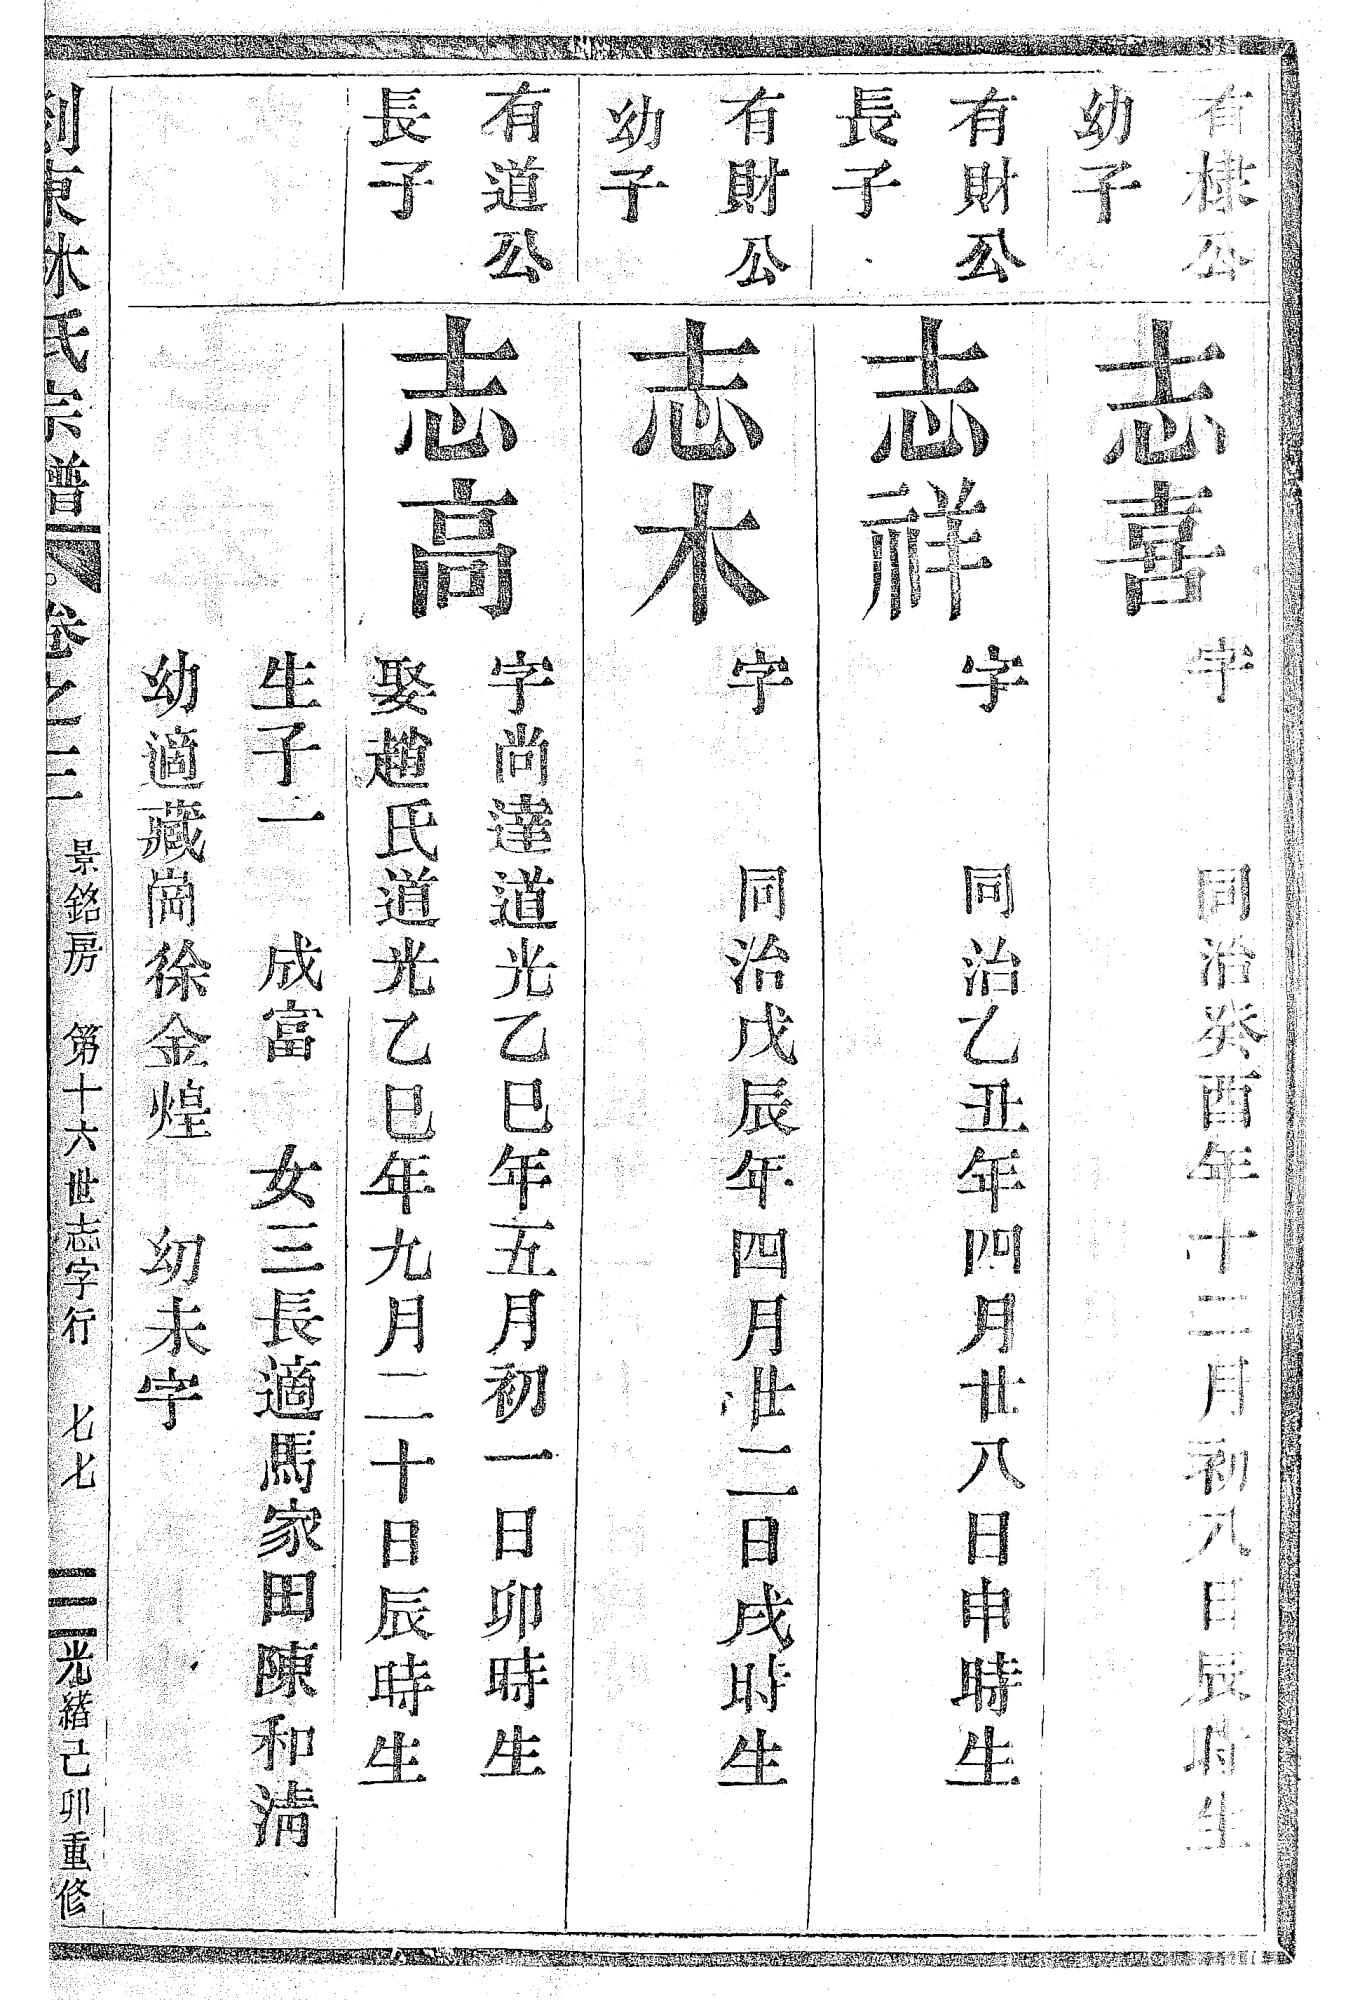 有棣公
幼子
志喜
字 同治癸酉年十二月初八日辰時生
有財公
長子
志祥
字 同治乙丑年四月廿八日申時生
有財公
幼子
志木
字 同治戊辰年四月廿二日戌時生
有道公
長子
志高
字尚達道光乙巳年五月初一日卯時生
娶趙氏道光乙巳年九月二十日辰時生
生子一 成富 女三長適馬家田陳和淸
幼適藏崗徐金煌 幼未字
剡東林氏宗譜 卷之三 景銘房 第十六世志字行 七七 光緒己卯重修